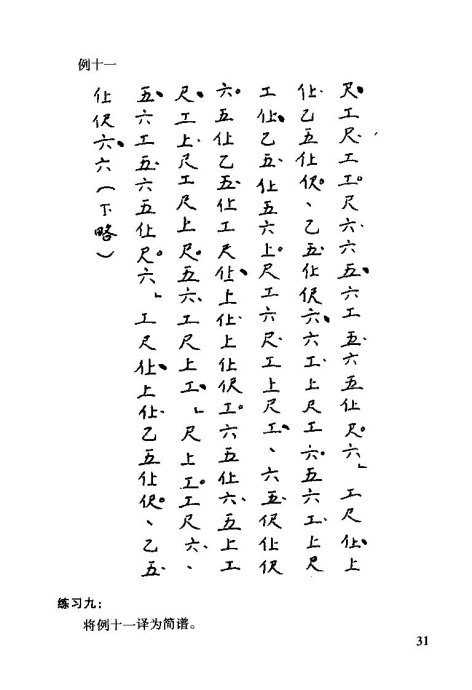 例十一
尺•工尺·工工。尺六·六五•六工五·六五仩尺。六」工尺仩•上
仩·乙五仩伬。、乙五·仩伬六•六工·上尺工六。五六工·上尺
工仩•乙五·仩五六上。尺工六尺·工上尺工•、六五·伬仩伬
六。五仩乙五·仩工尺仩•上仩·上仩伬工。六五仩六·五上工
尺•工上·尺工尺上尺。五六、工尺上工•」尺上工。工尺六·、
五•六工五·六五仩尺。六」工尺仩•上仩·乙五仩伬。、乙五·
仩伬六•六（下略）
练习九：
将例十一译为简谱。
31